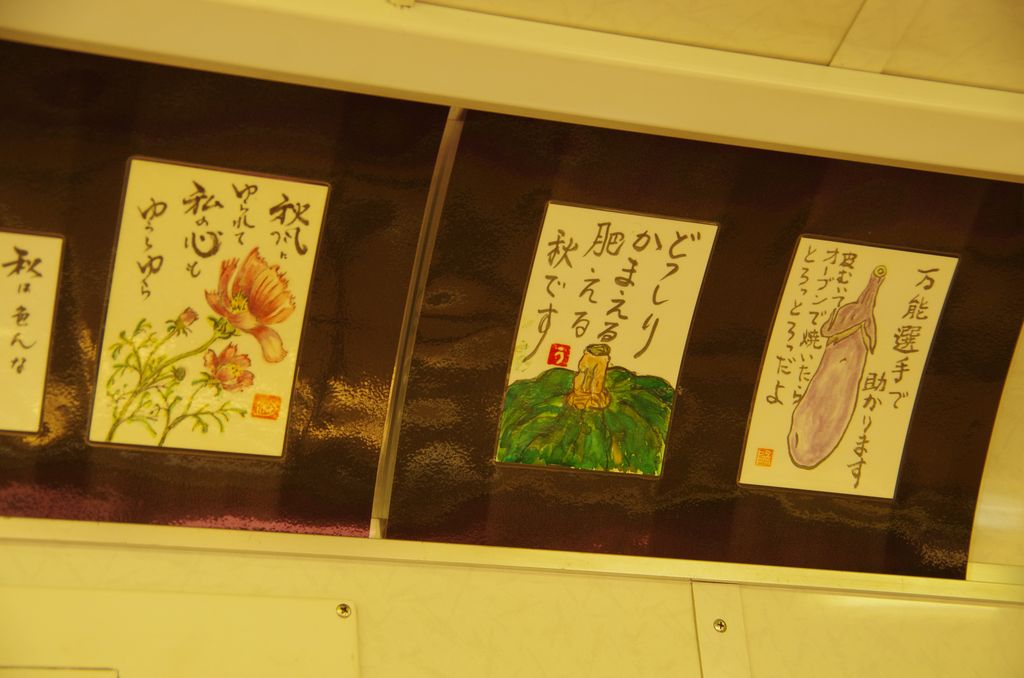 秋は色んな
秋風に
ゆられて
私の心も
ゆらゆら
どっしり
かまえる
肥える
秋です
う
万能選手で
助かります
皮むいて
オーブンで焼いたら
とろっとろっだよ